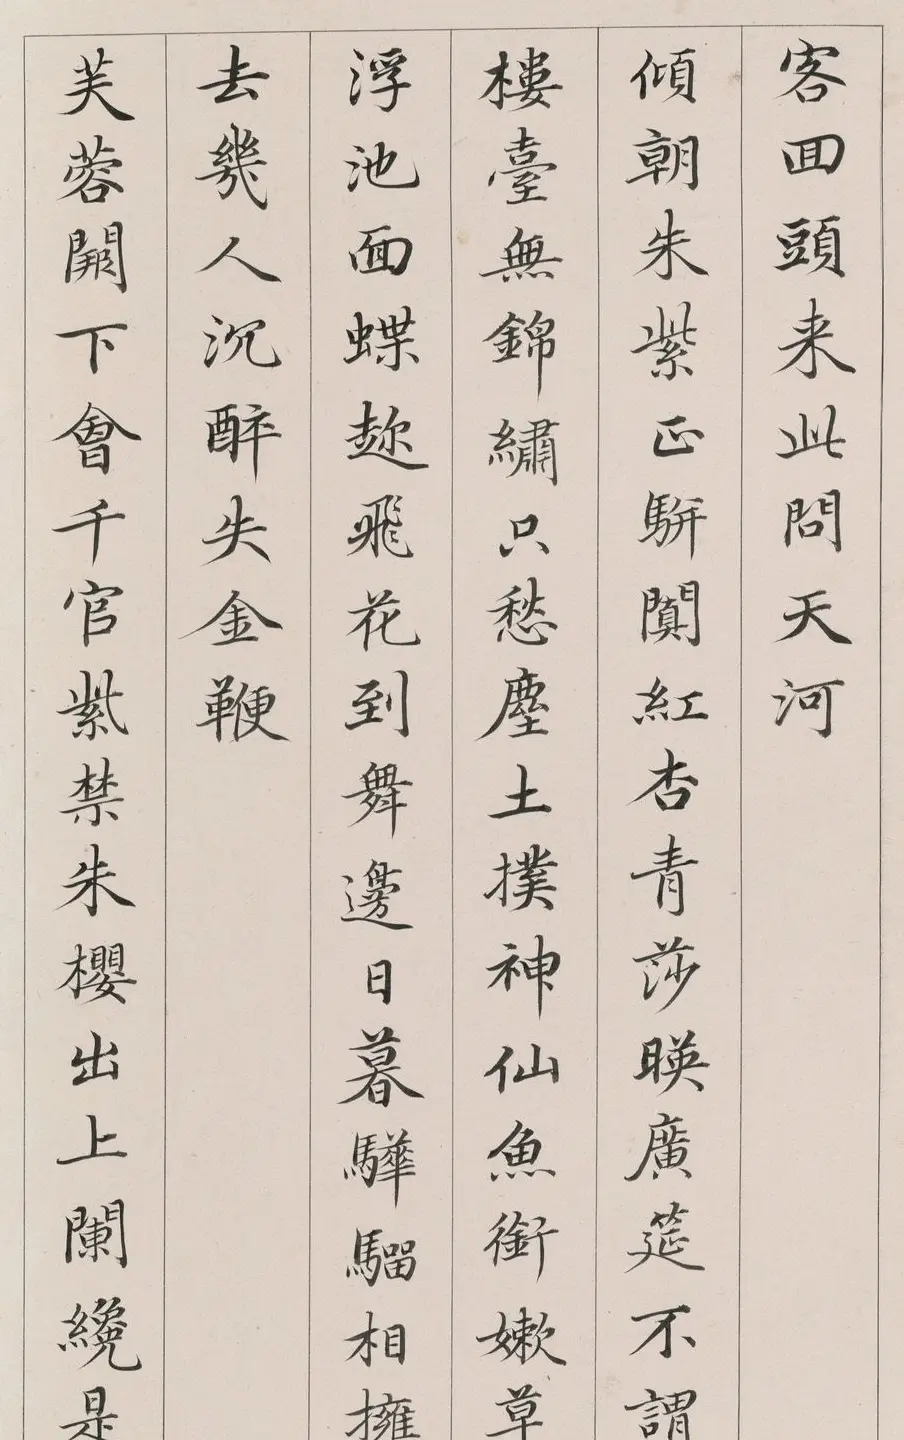 客回頭来此問天河
傾朝朱紫正駢闐紅杏青莎暎廣筵不謂
樓臺無錦繡只愁塵土撲神仙魚銜嫩草
浮池面蝶趂飛花到舞邊日暮驊騮相擁
去幾人沉醉失金鞭
芙蓉闕下會千官紫禁朱櫻出上闌纔是